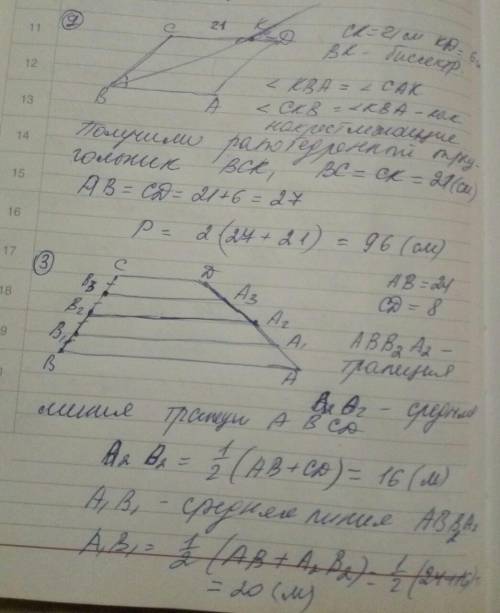 ②
C 21 K D
B A
CK = 21 см KD = 6
BK - биссектр.
∠ KBA = ∠ CAK
∠ CKB = ∠ KBA - как
накрест лежащие
Получили равнобедренный треу-
гольник BCK, BC = CK = 21 (см)
AB = CD = 21 + 6 = 27
P = 2 (27 + 21) = 96 (см)
③
C D
B3 A3
B2 A2
B1 A1
B A
AB = 24
CD = 8
ABB2A2 -
трапеция
B2A2 - средняя
линия трапец ABCD
A2B2 = 1/2 (AB + CD) = 16 (м)
A1B1 - средняя линия ABB2A2
A1B1 = 1/2 (AB + A2B2) = 1/2 (24 + 16) =
= 20 (м)
11
12
13
14
15
16
17
18
9